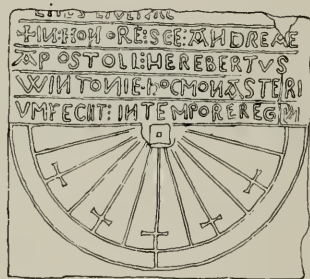 +IN:HON ORE:SCE:ANDREAE
APOSTOLI:HEREBERTVS
WINTONIE·hOCMONASTERI
VMFECIT: INTEMPOREREG